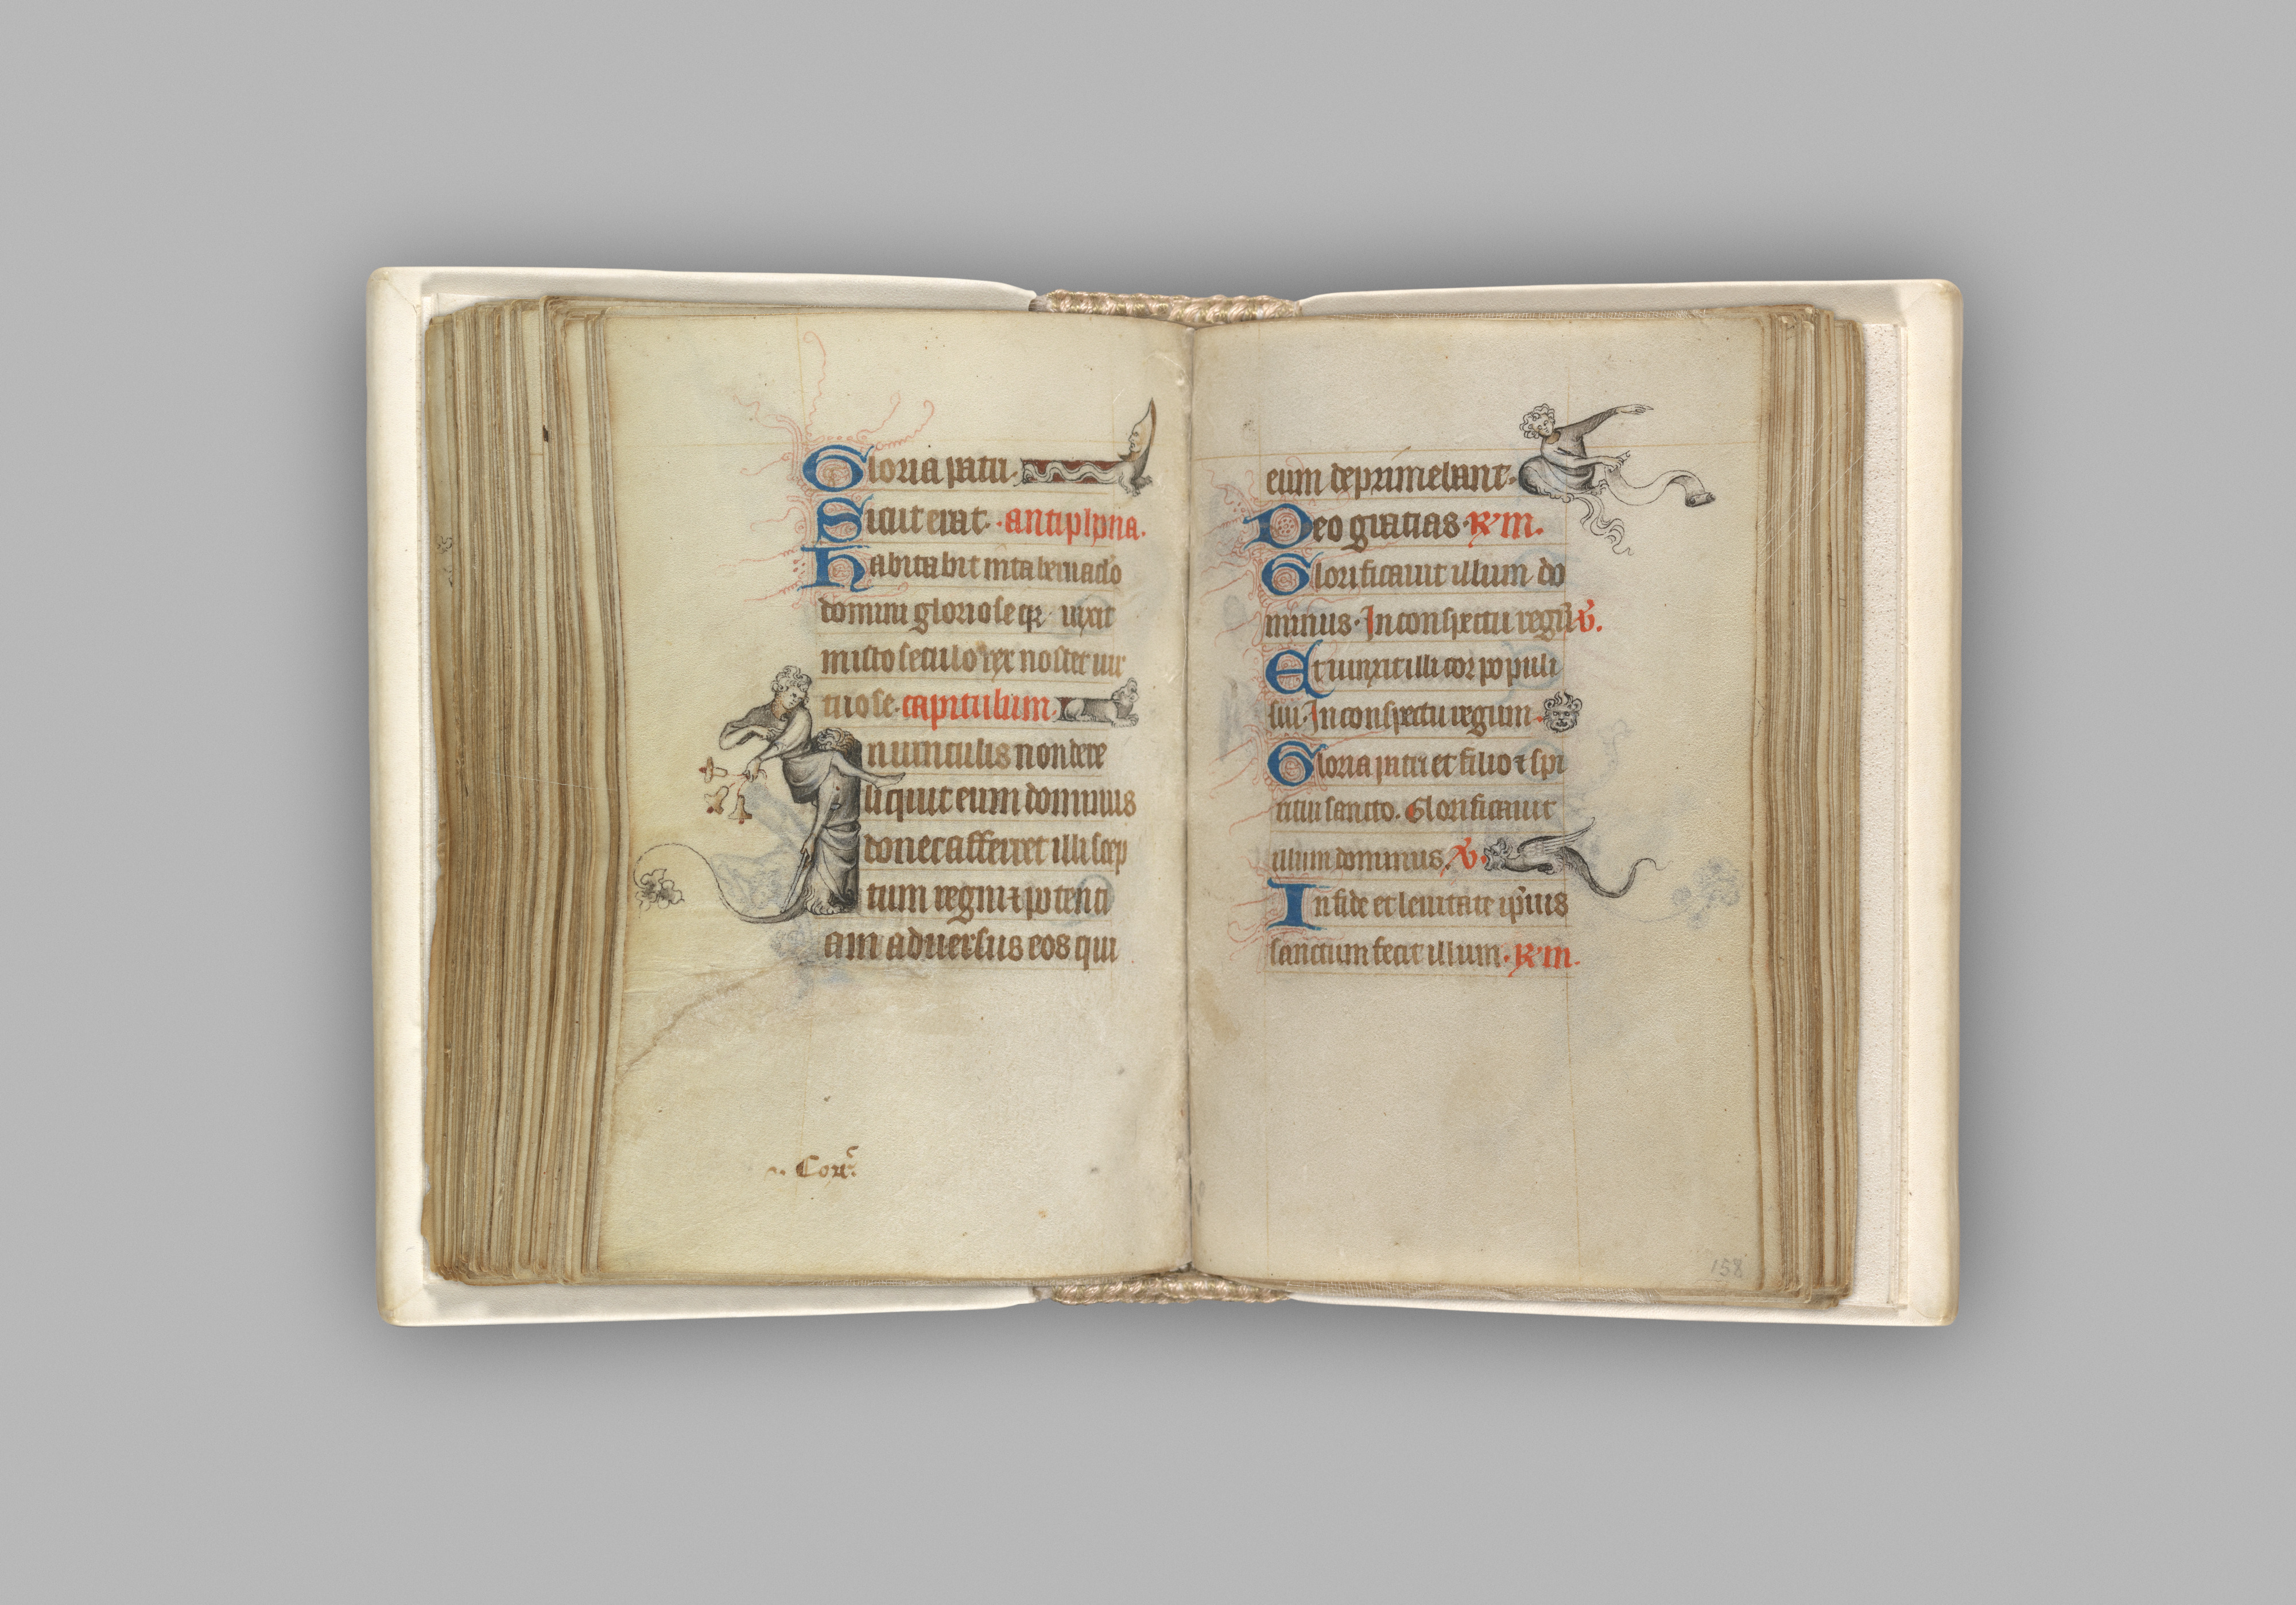 Gloria patri.
Sicut erat. antiphona.
Habitabit in tabernac̄lo
domini gloriose qr̄ uixit
in isto seculo rex noster uir
tuose. capitulum.
In uinculis non dere
liquit eum dominus
donec afferret illi scep
trum regni ⁊ potenti
am aduersus eos qui
Cor͛.
eum deprimebant.
Deo gratias. R̷m̄.
Glorificauit illum do
minus. In conspectu regū. V̷.
Et iunxit illi cor populi
sui. In conspectu regum.
Gloria patri et filio ⁊ spi
ritui sancto. Glorificauit
illum dominus. V̷.
In fide et lenitate ip̄ius
sanctum fecit illum. R̷m̄.
158